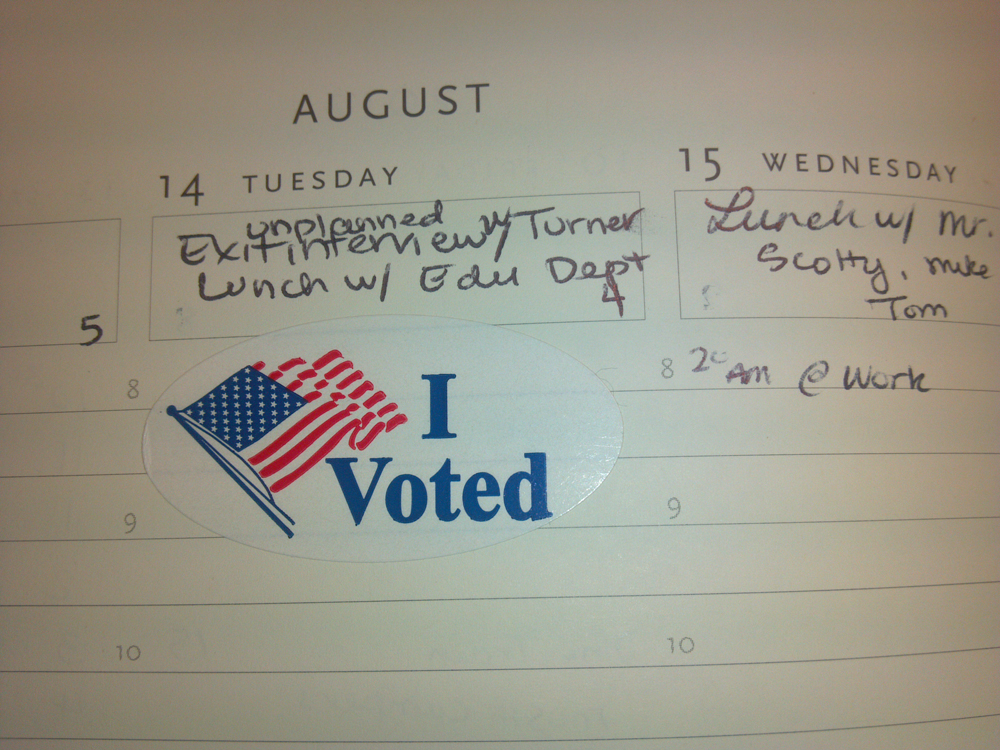 AUGUST
14 TUESDAY
unplanned
Exit interview w/ Turner
Lunch w/ Edu Dept
4
5
8
I
Voted
9
10
15 WEDNESDAY
Lunch w/ Mr.
Scotty, Mike
Tom
8 20 AM @ Work
9
10